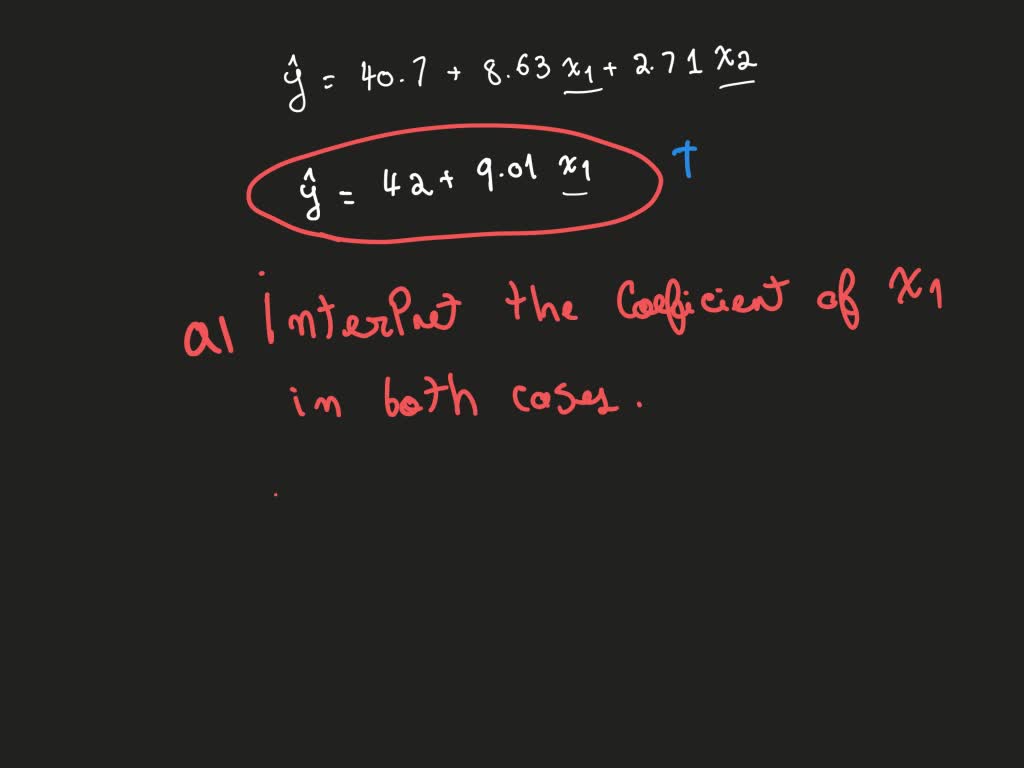 ŷ = 40.7 + 8.63 x1 + 2.71 x2
ŷ = 42 + 9.01 x1 T
a) Interpret the Coeficient of x1
in both cases.